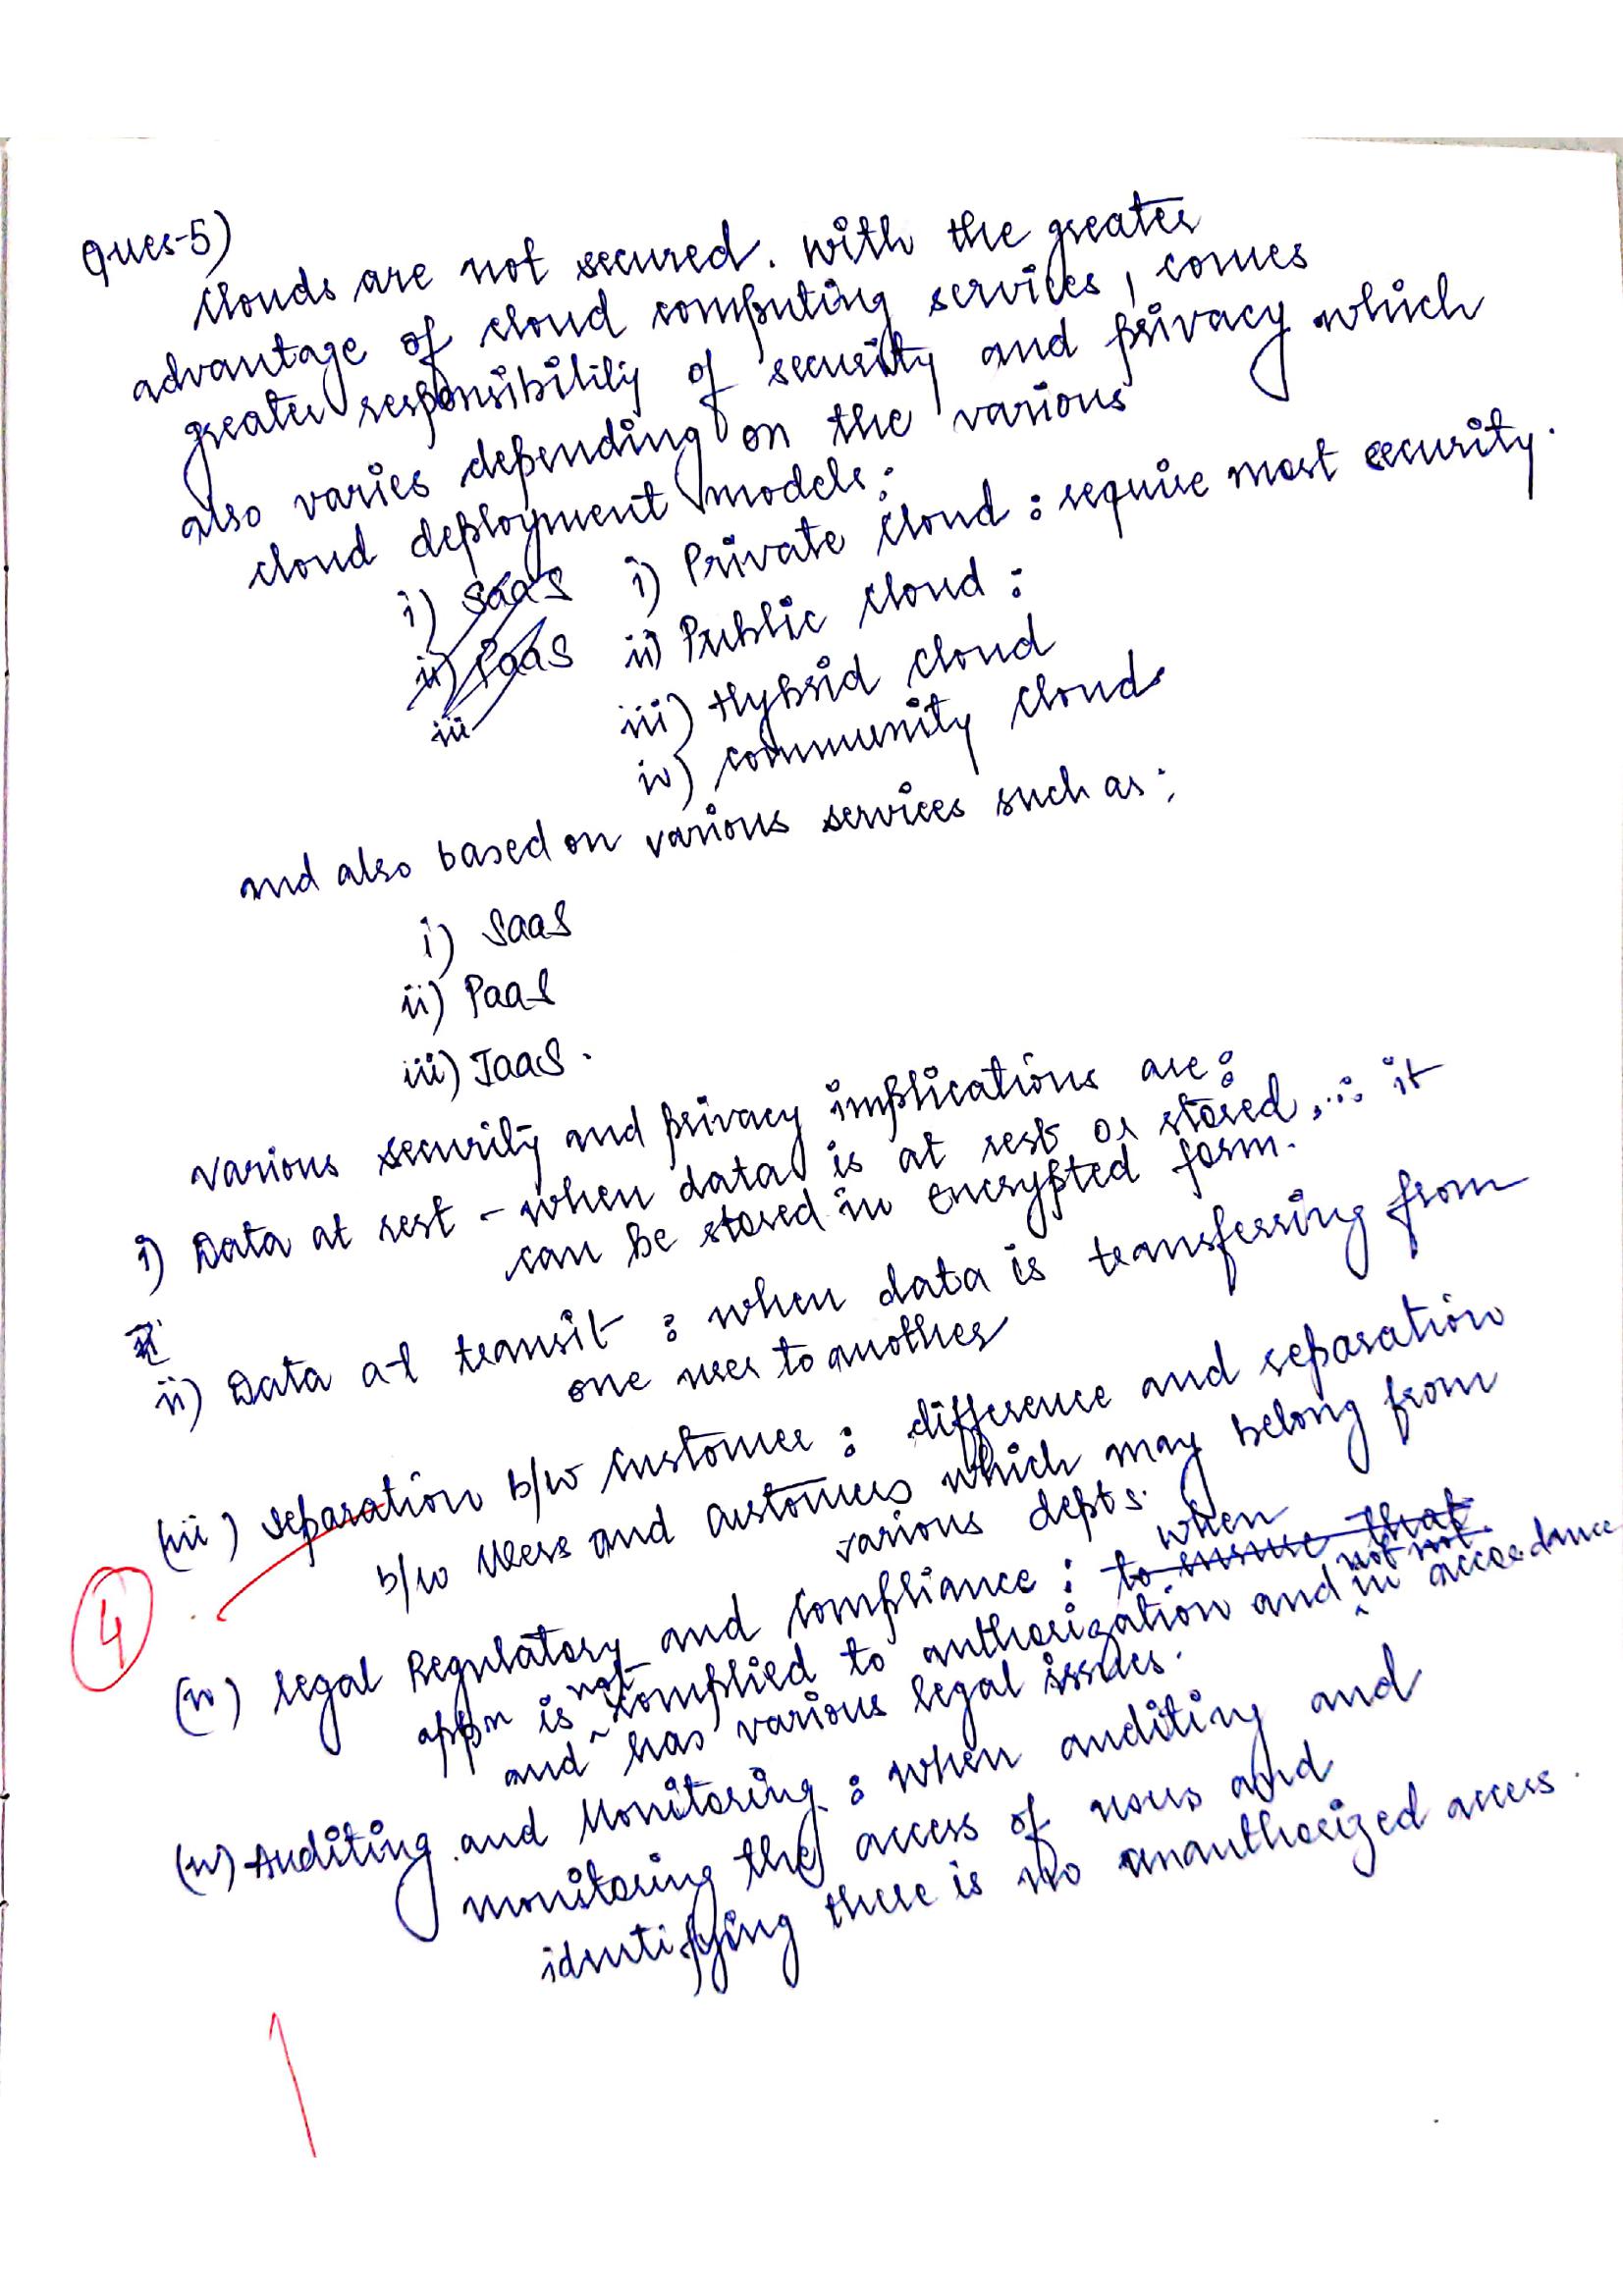 Ques-5)
Clouds are not secured. With the greater
advantage of cloud computing services, comes
greater responsibility of security and privacy which
also varies depending on the various
cloud deployment models:
i) SaaS
ii) PaaS
iii
i) Private cloud : require most security.
ii) Public cloud :
iii) Hybrid cloud
iv) community cloud.
and also based on various services such as:
i) SaaS
ii) PaaS
iii) IaaS.
various security and privacy implications are:
i) Data at rest - when data is at rest or stored, ∴ it
can be stored in encrypted form.
ii) Data at transit : when data is transferring from
one user to another
(iii) separation b/w customer : difference and separation
b/w users and customers which may belong from
various depts.
(iv) legal Regulatory and compliance : to ensure that when
appn is not complied to authorization and not in accordance
and has various legal issues.
(v) Auditing and Monitoring : when auditing and
monitoring the access of users and
identifying there is no unauthorized access.
4